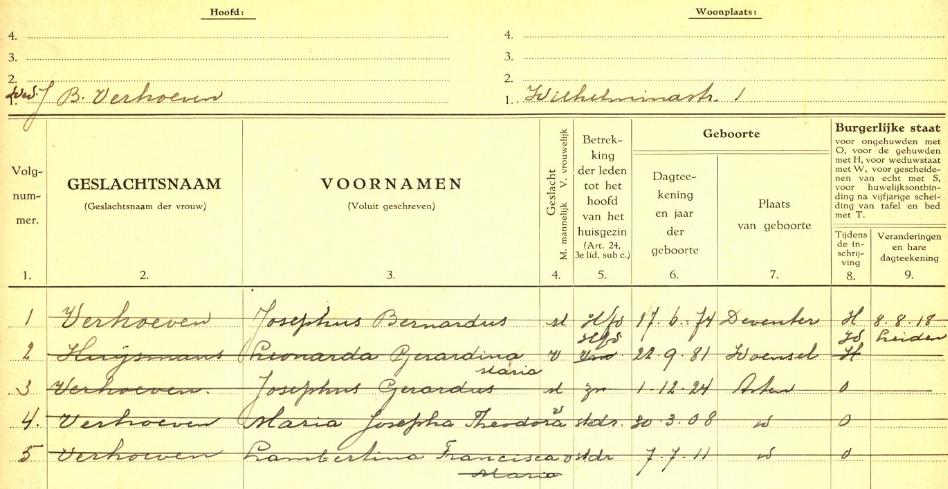 Hoofd:
Woonplaats:
4.
4.
3.
3.
2.
2.
Wed. 1. J B. Verhoeven
1. Wilhelminastr. 1
Volg-
num-
mer.
GESLACHTSNAAM
(Geslachtsnaam der vrouw)
VOORNAMEN
(Voluit geschreven)
Geslacht
M. mannelijk V. vrouwelijk
Betrek-
king
der leden
tot het
hoofd
van het
huisgezin
(Art. 24,
3e lid, sub c.)
Geboorte
Dagtee-
kening
en jaar
der
geboorte
Plaats
van geboorte
Burgerlijke staat
voor ongehuwden met
O, voor de gehuwden
met H, voor weduwstaat
met W, voor gescheide-
nen van echt met S,
voor huwelijksontbin-
ding na vijfjarige schei-
ding van tafel en bed
met T.
Tijdens
de in-
schrij-
ving
Veranderingen
en hare
dagteekening
1. 2. 3. 4. 5. 6. 7. 8. 9.
1 Verhoeven Josephus Bernardus M Hfd 17.6.74 Deventer H 8.8.18
Hfd W Leiden
2 Huijsmans Leonarda Gerardina V 22.9.81 Woensel H
Maria
3 Verhoeven. Josephus Gerardus M zn 1.12.24 Asten O
4. Verhoeven Maria Josepha Theodora V dr. 30.3.08 O
5 Verhoeven Lambertina Francisca V dr 7.7.11 O
Maria